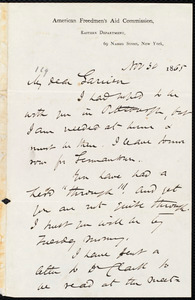 American Freedmen's Aid Commission,
Eastern Department,
69 Nassau Street, New York,
Nov 30 1865
My dear Garrison
I had hoped to be
with you in Pittsburgh, but
I am needed at home &
must be then. I leave tomor
row for Germantown.
You have had a
hard "through it" and yet
you are not quite through
I trust you will be by
Tuesday Morning.
I have sent a
letter to Dr Clark to
be read at the meet-